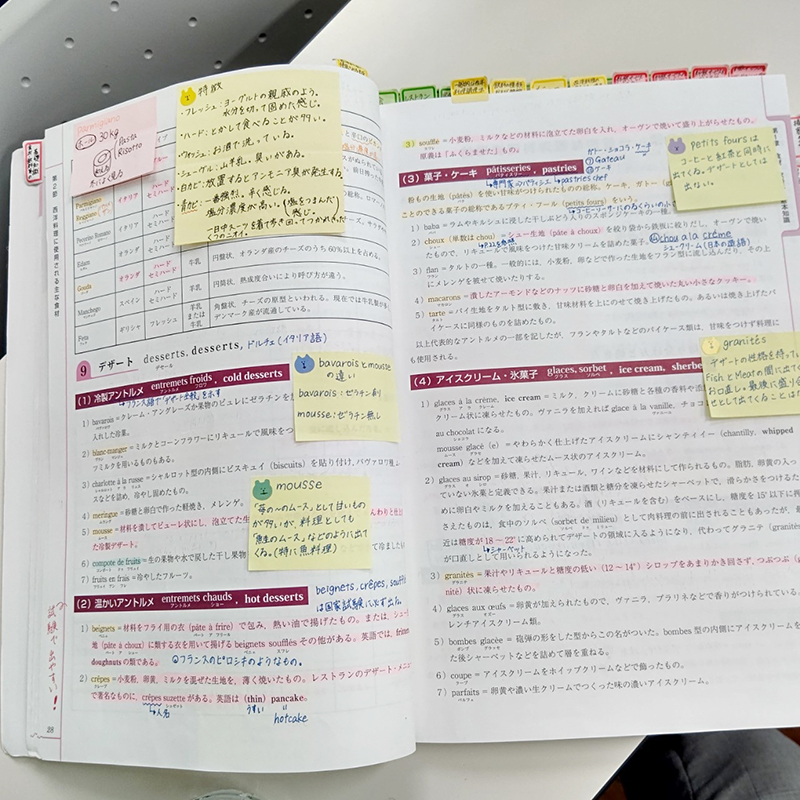 第2節 西洋料理に使用される主な食材
Parmigiano
ホール
30kg
Pasta
Risotto
特徴
・フレッシュ：ヨーグルトの親戚のよう。
水分を切って固めた感じ。
・ハード：とかして食べることが多い。
・ウォッシュ：お酒で洗っている。
・シェーブル：山羊乳。臭いがある。
・白カビ：放置するとアンモニア臭が発生する
・青カビ：一番強烈。辛く感じる。
塩分濃度が高い。
Parmigiano
Reggiano
イタリア
ハード
Pecorino Romano
イタリア
ハード
Edam
オランダ
ハード
セミハード
牛乳
円盤状，オランダ産のチーズのうち60％以上を占める。
Gouda
オランダ
ハード
セミハード
牛乳
円筒状，熟成度合いにより呼び方が違う。
Manchego
スペイン
ハード
セミハード
Feta
ギリシャ
フレッシュ
牛乳
または
羊乳
角盤状，チーズの原型といわれる。現在では牛乳製が多
デンマーク産が流通している。
9 デザート desserts, desserts, ドルチェ(イタリア語)
デセール
(1) 冷製アントルメ entremets froids, cold desserts
アントルメ フロワ
bavaroisとmousse
の違い
bavarois：ゼラチン有
mousse：ゼラチン無し
1) bavarois＝クレーム・アングレーズか果物のピュレにゼラチンを
入れした冷菓。
2) blanc-manger＝ミルクとコーンフラワーにリキュールで風味をつ
フミルクを用いるものもある。
3) charlotte à la russe＝シャルロット型の内側にビスキュイ（biscuits）を貼り付け，ババロワ種
スなどを詰め，冷やし固めたもの。
4) meringue＝砂糖と卵白で作った軽焼き，メレンゲ。
5) mousse＝材料を漉してピューレ状にし，泡立てた生
た冷製デザート。
6) compote de fruits＝生の果物や水で戻した干し果物
7) fruits en frais＝冷やしたフルーツ。
mousse
「苺の〜のムース」として甘いもの
が多いが、料理としても
「魚生のムース」などのように出て
くる。(特に無料理)
(2) 温かいアントルメ entremets chauds, hot desserts
アントルメ ショー
beignets, crêpes, soufflé
は国家試験に必ず出る。
1) beignets＝材料をフライ用の衣（pâte à frire）で包み，熱い油で揚げたもの。または，シュー
地（pâte à choux）に類する衣を用いて揚げる beignets soufflés その他がある。英語では，
doughnuts の類である。
フランスのピロシキのようなもの。
2) crêpes＝小麦粉，卵黄，ミルクを混ぜた生地を，薄く焼いたもの。レストランのデザート・メニュー
で著名なものに，crêpes suzette がある。英語は（thin）pancake。
人名
うすい
hotcake
試験で出やすい！
38
3) soufflé＝小麦粉，ミルクなどの材料に泡立てた卵白を入れ，オーヴンで焼いて盛り上がらせたもの。
原義は「ふくらませた」もの。
ガトー・ショコラ・ケーキ
(3) 菓子・ケーキ pâtisseries, pastries
パティスリー
Gateau
ケーキ
専門家のパティシエ、pastries chef
粉もの生地（pâtés）を使い甘味がつけられたものの総称。ケーキ，ガトー
ことのできる菓子の総称であるプティ・フール（petits fours）をいう。
petits foursは
コーヒーと紅茶と同時に
出てくる。デザートとしては
出ない。
1) baba＝ラムやキルシュに浸した干しぶどう入りのスポンジケーキの一種。
2) choux（単数はchou）＝シュー生地（pâte à choux）を袋から鉄板に絞りだし，オーヴンで焼い
たもので，リキュールで風味をつけた甘味クリームを詰めた菓子。
chou à la crème
シュークリーム(日本の造語)
3) flan＝タルトの一種。一般的には，小麦粉，卵などで作った生地をフラン型に流し込んだり，その上
にメレンゲを載せて焼いたりする。
4) macarons＝潰したアーモンドなどのナッツに砂糖と卵白を加えて焼いた丸い小さなクッキー。
5) tarte＝パイ生地をタルト型に敷き，甘味材料を上にのせて焼き上げたもの。あるいは焼き上げたパ
イケースに同様のものを詰めたもの。
以上代表的なアントルメの一部を記したが，フランやタルトなどのパイケース類は，甘味をつけず料理に
も使用される。
granités
デザートの性格を持って
FishとMeatの間に出て
お口直し。最後に盛り
(4) アイスクリーム・氷菓子 glaces, sorbet, ice cream, sherbe
グラス ソルベ
1) glaces à la crème, ice cream＝ミルク，クリームに砂糖と各種の香料や
クリーム状に凍らせたもの。ヴァニラを加えれば glace à la vanille，チョコ
au chocolat になる。
mousse glacée (e)＝やわらかく仕上げたアイスクリームにシャンティイー（chantilly, whipped
cream）などを加えて凍らせたムース状のアイスクリーム。
2) glaces au sirop＝砂糖，果汁，リキュール，ワインなどを材料にして作られるもの。脂肪，卵黄の入っ
ていない氷菓と定義できる。果汁または酒類と糖分を凍らせたシャーベットで，滑らかさをつけるた
めに卵白やミルクを加えることもある。酒（リキュールを含む）をベースにし，糖度を15°以下に
さえたものは，食中のソルベ（sorbet de milieu）として肉料理の前に出されることもあったが，最
近は糖度が18〜22°に高められてデザートの領域に入るようになり，代わってグラニテ（granité
が口直しとして用いられるようになった。
シャーベット
3) granités＝果汁やリキュールと糖度の低い（12〜14°）シロップをあまりかき回さず，つぶつぶ（g
nité）状に凍らせたもの。
4) glaces aux œufs＝卵黄が加えられたもので，ヴァニラ，プラリネなどで香りがつけられている。
レンチアイスクリーム類。
5) bombes glacées＝砲弾の形をした型からこの名がついた。bombes型の内側にアイスクリームを
た後シャーベットなどを詰めて層を重ねる。
6) coupe＝アイスクリームをホイップクリームなどで飾ったもの。
7) parfaits＝卵黄や濃い生クリームでつくった味の濃いアイスクリーム。